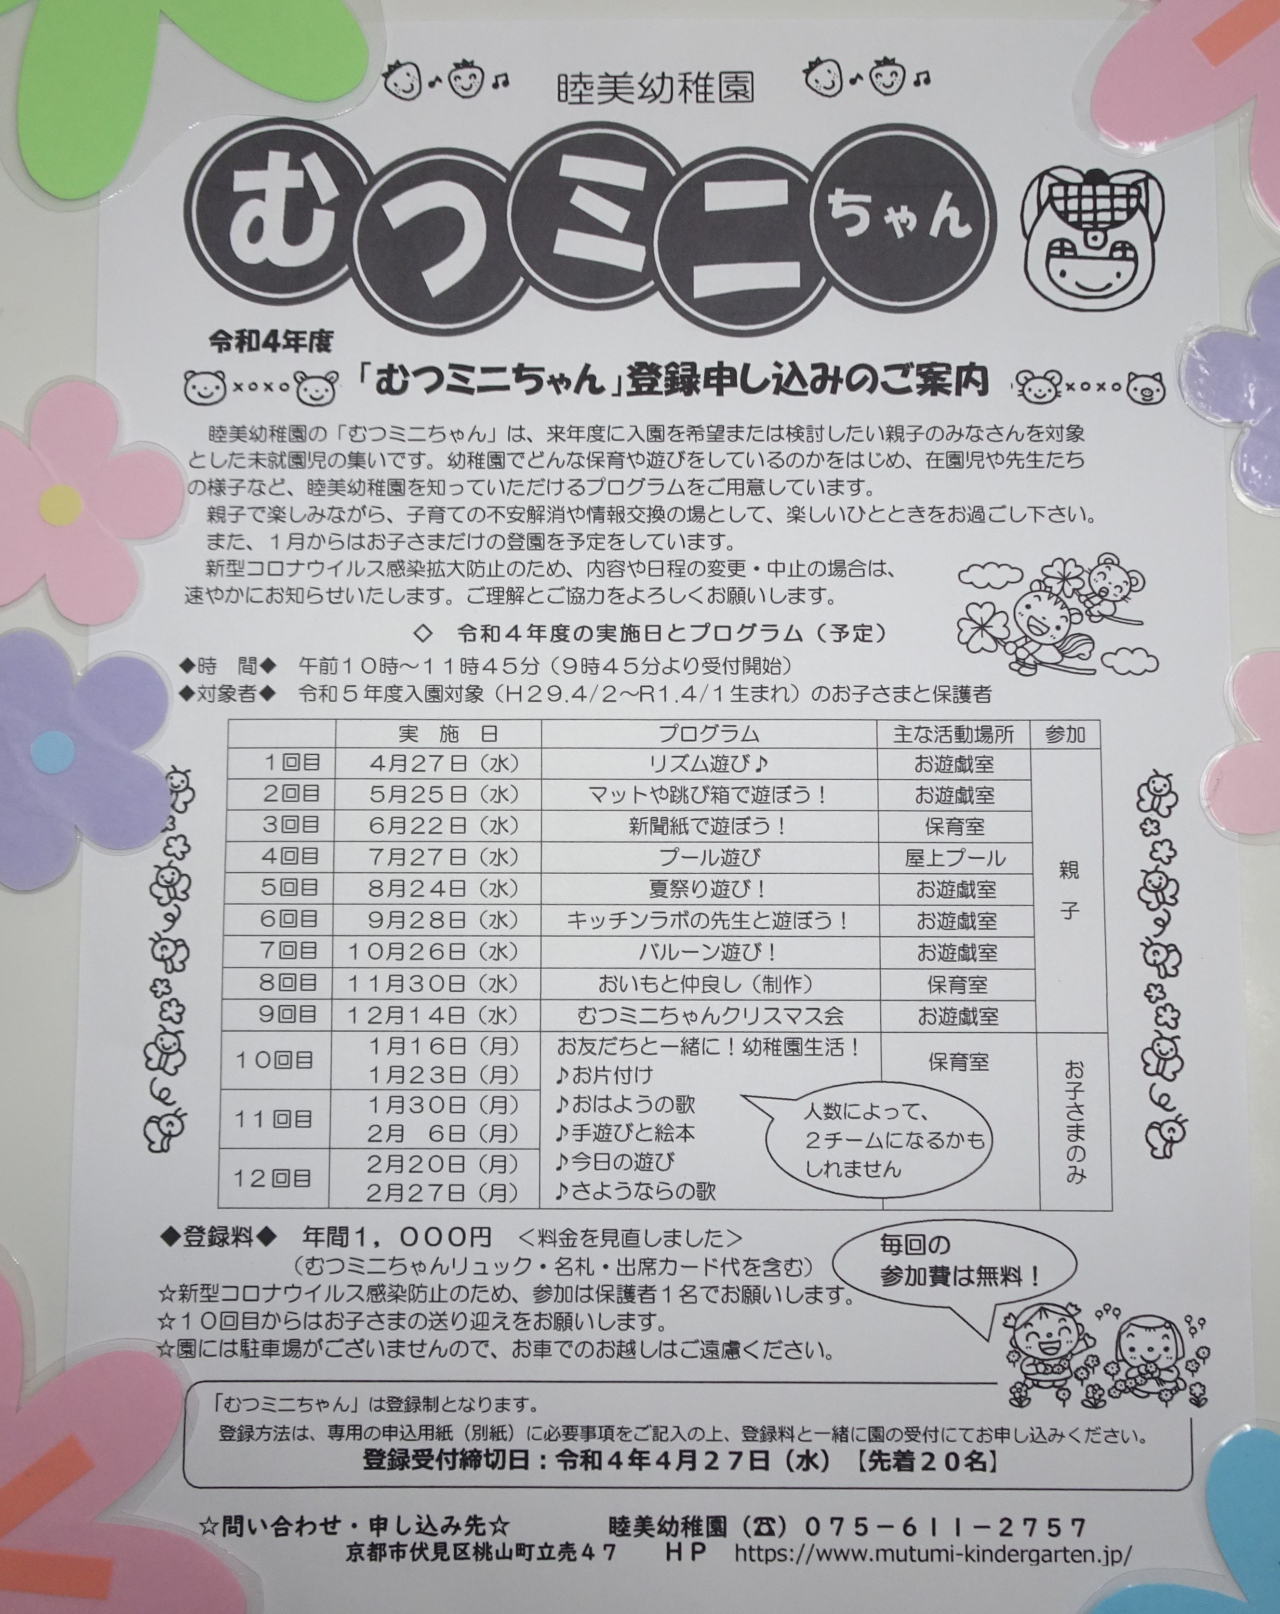 睦美幼稚園
むつミニちゃん
令和4年度
「むつミニちゃん」登録申し込みのご案内
睦美幼稚園の「むつミニちゃん」は、来年度に入園を希望または検討したい親子のみなさんを対象
とした未就園児の集いです。幼稚園でどんな保育や遊びをしているのかをはじめ、在園児や先生たち
の様子など、睦美幼稚園を知っていただけるプログラムをご用意しています。
親子で楽しみながら、子育ての不安解消や情報交換の場として、楽しいひとときをお過ごし下さい。
また、１月からはお子さまだけの登園を予定をしています。
新型コロナウイルス感染拡大防止のため、内容や日程の変更・中止の場合は、
速やかにお知らせいたします。ご理解とご協力をよろしくお願いします。
◇ 令和４年度の実施日とプログラム（予定）
◆時　間◆ 午前１０時～１１時４５分（９時４５分より受付開始）
◆対象者◆ 令和５年度入園対象（H29.4/2～R1.4/1生まれ）のお子さまと保護者
実　施　日 プログラム 主な活動場所 参加
１回目 ４月２７日（水） リズム遊び♪ お遊戯室
２回目 ５月２５日（水） マットや跳び箱で遊ぼう！ お遊戯室
３回目 ６月２２日（水） 新聞紙で遊ぼう！ 保育室
４回目 ７月２７日（水） プール遊び 屋上プール
５回目 ８月２４日（水） 夏祭り遊び！ お遊戯室
６回目 ９月２８日（水） キッチンラボの先生と遊ぼう！ お遊戯室
７回目 １０月２６日（水） バルーン遊び！ お遊戯室
８回目 １１月３０日（水） おいもと仲良し（制作） 保育室
９回目 １２月１４日（水） むつミニちゃんクリスマス会 お遊戯室
親子
１０回目 １月１６日（月） お友だちと一緒に！幼稚園生活！ 保育室
１月２３日（月） ♪お片付け
１１回目 １月３０日（月） ♪おはようの歌
２月　６日（月） ♪手遊びと絵本
１２回目 ２月２０日（月） ♪今日の遊び
２月２７日（月） ♪さようならの歌
お子さまのみ
人数によって、
２チームになるかも
しれません
◆登録料◆ 年間１，０００円 ＜料金を見直しました＞
（むつミニちゃんリュック・名札・出席カード代を含む）
毎回の
参加費は無料！
☆新型コロナウイルス感染防止のため、参加は保護者１名でお願いします。
☆１０回目からはお子さまの送り迎えをお願いします。
☆園には駐車場がございませんので、お車でのお越しはご遠慮ください。
「むつミニちゃん」は登録制となります。
登録方法は、専用の申込用紙（別紙）に必要事項をご記入の上、登録料と一緒に園の受付にてお申し込みください。
登録受付締切日：令和４年４月２７日（水）【先着２０名】
☆問い合わせ・申し込み先☆ 睦美幼稚園（☎）０７５－６１１－２７５７
京都市伏見区桃山町立売４７ ＨＰ https://www.mutumi-kindergarten.jp/